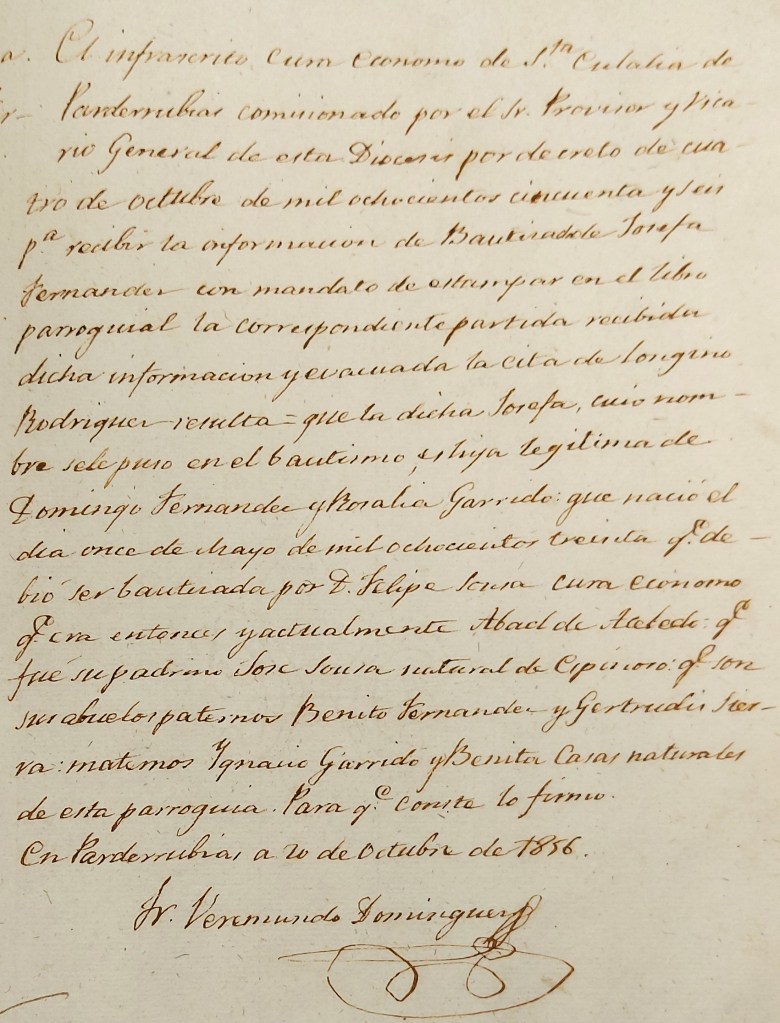 a. El infrascrito cura economo de S.ta Eulalia de
r- Parderrubias comisionado por el Sr. Provisor y Vica-
rio General de esta Diocesis por decreto de cua-
tro de octubre de mil ochocientos cincuenta y seis
p.a recibir la informacion de Bautismo de Josefa
Fernandez con mandato de estampar en el libro
parroquial la correspondiente partida recibida
dicha informacion y evacuada la cita de Longino
Rodriguez resulta = que la dicha Josefa, cuio nom-
bre se le puso en el bautismo, es hija legitima de
Domingo Fernandez y Rosalia Garrido: que nació el
dia once de Mayo de mil ochocientos treinta q.e de-
bió ser bautizada por D. Felipe Sousa cura economo
q.e era entonces y actualmente Abad de Acebedo: q.e
fué su padrino Jose Sousa natural de Espinoso: q.e son
sus abuelos paternos Benito Fernandez y Gertrudis Sier-
ra: maternos Ygnacio Garrido y Benita Casas naturales
de esta parroquia. Para q.e conste lo firmo.
En Parderrubias a 20 de Octubre de 1856.
Fr. Veremundo Dominguez